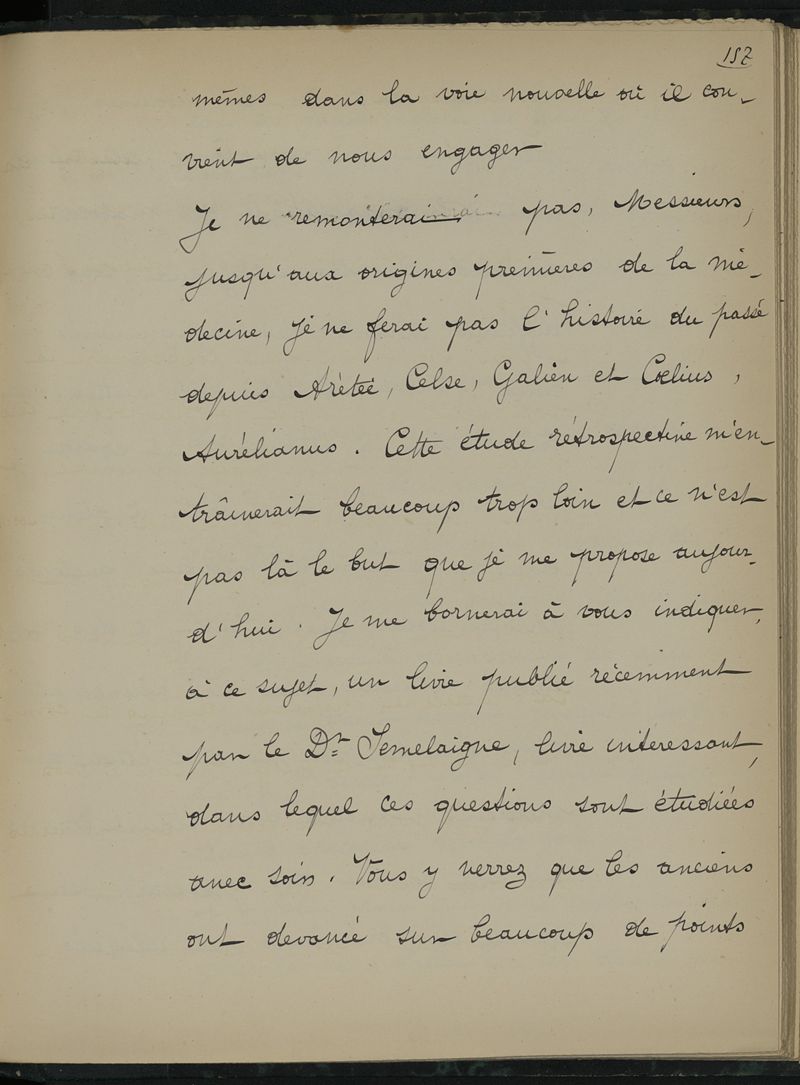 157
mêmes dans la voie nouvelle où il con-
vient de nous engager
Je ne remonterai pas, Messieurs,
jusqu'aux origines premières de la mé-
decine, je ne ferai pas l'histoire du passé
depuis Arétée, Celse, Galien et Cœlius,
Aurélianus. Cette étude rétrospective m'en-
traînerait beaucoup trop loin et ce n'est
pas là le but que je me propose aujour-
d'hui. Je me bornerai à vous indiquer,
à ce sujet, un livre publié récemment
par le Dr Semelaigne, livre intéressant,
dans lequel ces questions sont étudiées
avec soin. Vous y verrez que les anciens
ont devancé sur beaucoup de points